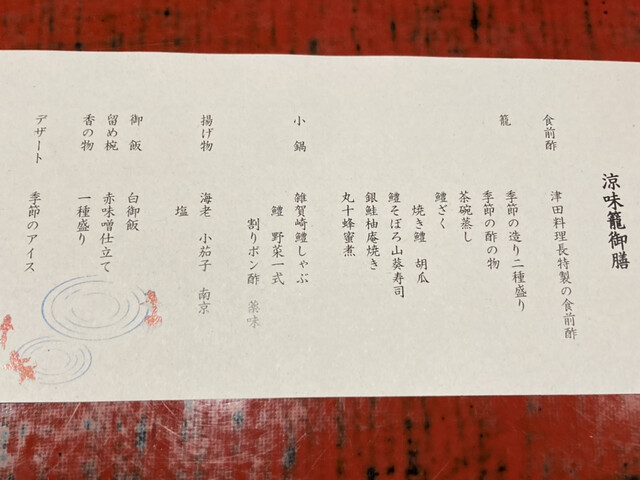 涼味籠御膳
食前酢 津田料理長特製の食前酢
籠 季節の造り二種盛り
季節の酢の物
茶碗蒸し
鱧ざく
焼き鱧 胡瓜
鱧そぼろ山葵寿司
銀鮭柚庵焼き
丸十蜂蜜煮
小鍋 雑賀崎鱧しゃぶ
鱧 野菜一式
割りポン酢 薬味
揚げ物 海老 小茄子 南京
塩
御飯 白御飯
留め椀 赤味噌仕立て
香の物 一種盛り
デザート 季節のアイス